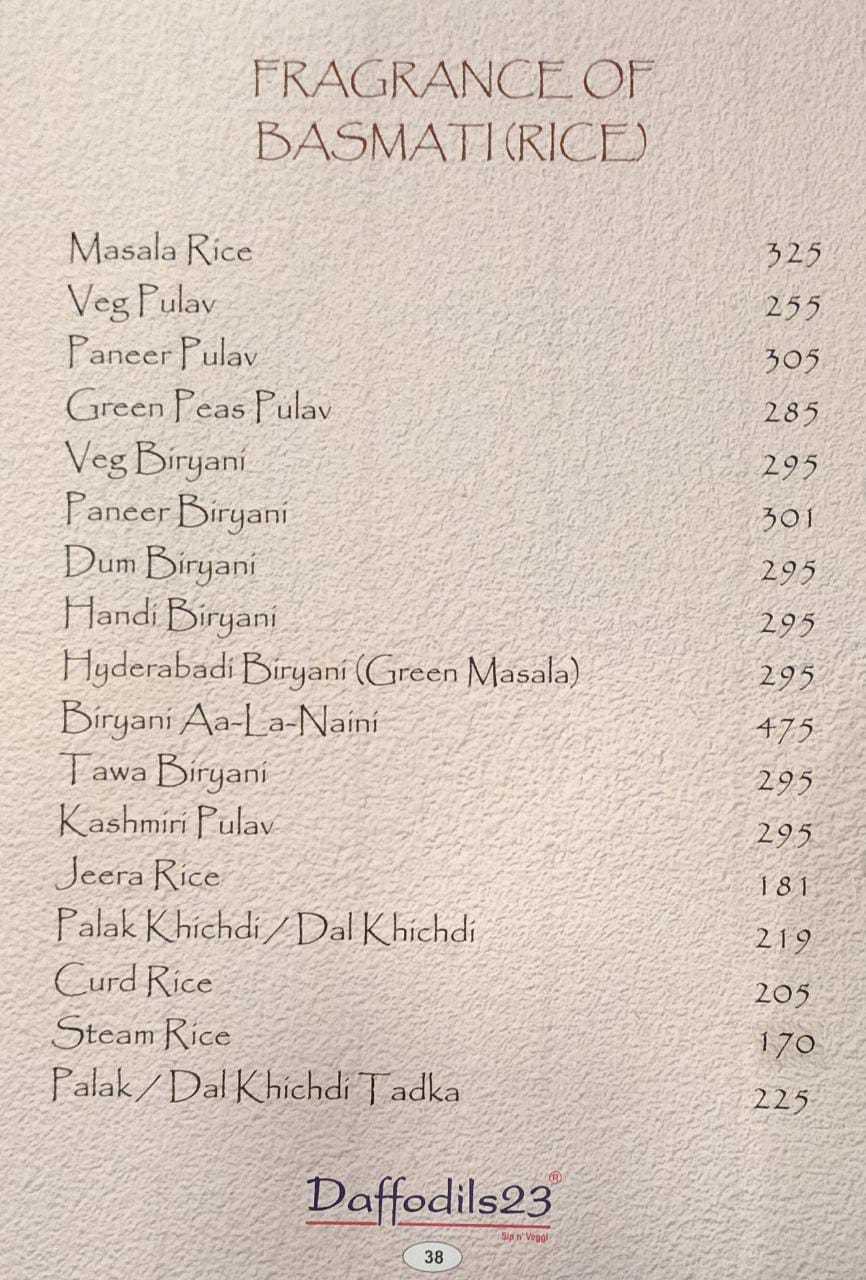 FRAGRANCE OF
BASMATI (RICE)
Masala Rice 325
Veg Pulav 255
Paneer Pulav 305
Green Peas Pulav 285
Veg Biryani 295
Paneer Biryani 301
Dum Biryani 295
Handi Biryani 295
Hyderabadi Biryani (Green Masala) 295
Biryani Aa-La-Naini 475
Tawa Biryani 295
Kashmiri Pulav 295
Jeera Rice 181
Palak Khichdi / Dal Khichdi 219
Curd Rice 205
Steam Rice 170
Palak / Dal Khichdi Tadka 225
Daffodils23®
Sip n' Veggi
38